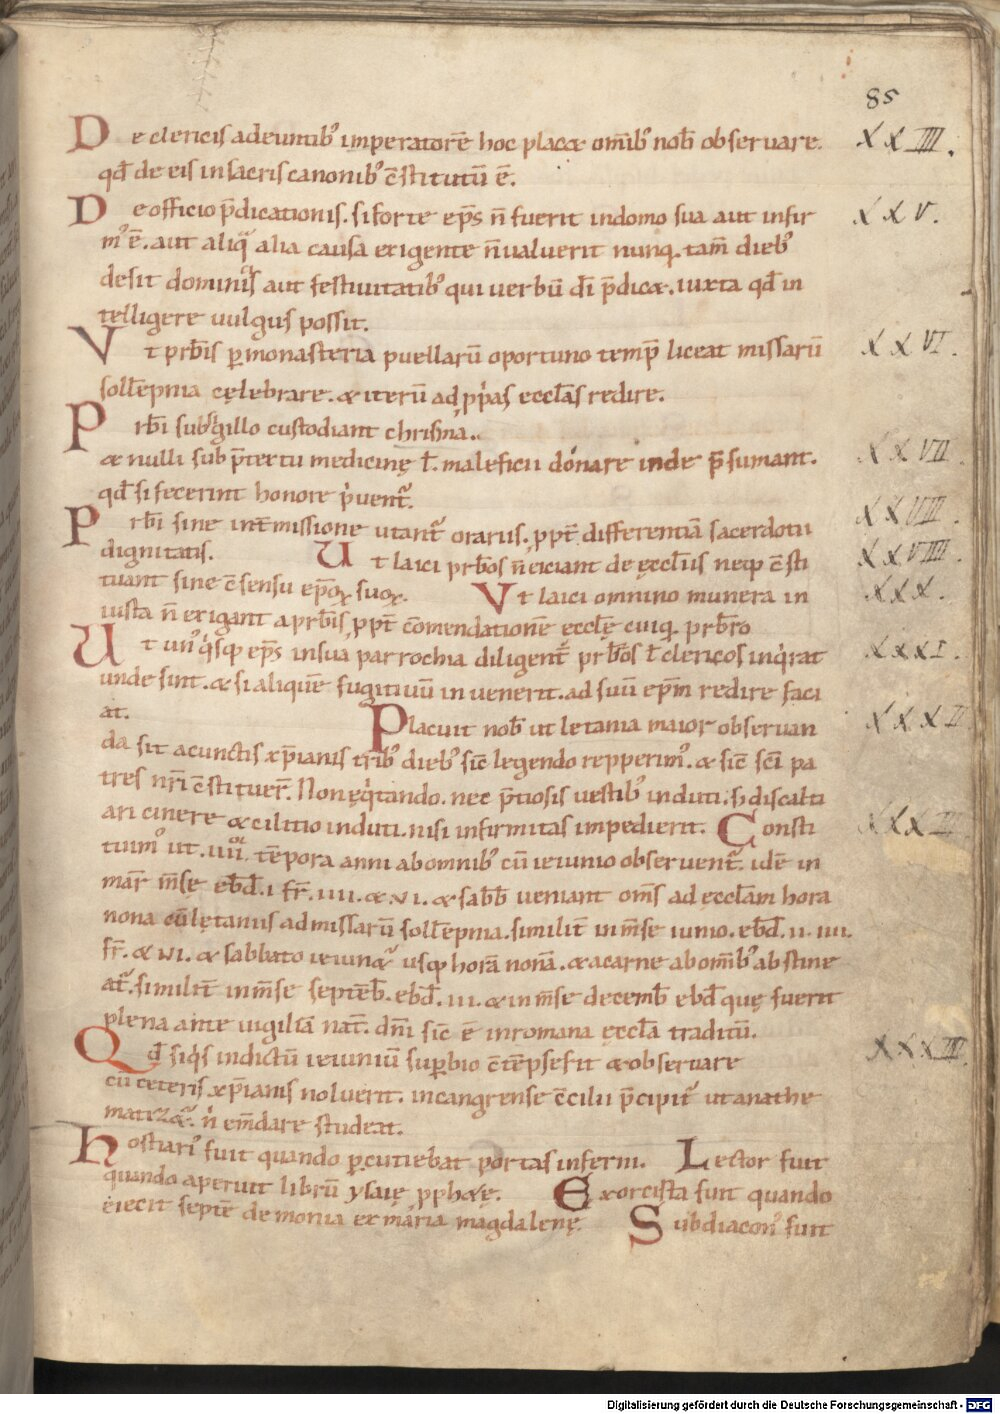 85
De clericis adeuntib' imperatorē hoc placæ om̄ib' nob̄ obseruare. XXIIII.
qd̄ de eis in sacris canonib' c̄stitutū ē.
De officio p̄dicationis. si forte ep̄s n̄ fuerit in domo sua aut infir XXV.
m' ē. aut aliq̄ alia causa exigente n̄ ualuerit nunq. tam̄ dieb'
desit dominicis aut festiuitatib' qui uerbū dī p̄dicæ. iuxta qd̄ in
telligere uulgus possit.
Vt prb̄is ꝑ monasteria puellarū oportuno temp̄ liceat missarū XXVI.
soll̄epnia cęlebrare. & iterū ad ꝓpᵃas eccl̄as redire.
Prb̄i sub sigillo custodiant chrisma..
& nulli sub p̄textu medicinę ł maleficii donare inde p̄sumant. XXVII.
qd̄ si fecerint honore pⁱuent᷑.
Prb̄i sine int̄missione utant᷑ orariis. ꝓpt̄ differentiā sacerdotii XXVIII.
dignitatis. Ut laici prb̄os n̄ eiciant de ęccl̄iis neqꝫ c̄sti XXVIIII.
tuant sine c̄sensu ep̄oꝝ suoꝝ. Vt laici omnino munera in XXX.
iusta n̄ exigant a prb̄is ꝓpt̄ cōmendationē ecclę̄ cuiq. prb̄ro
Ut un' qⁱsqꝫ ep̄s in sua parrochia diligent̄ prb̄os ł clericos inqⁱrat XXXI.
unde sint. & si aliquē fugitiuū inuenerit. ad suū ep̄m redire faci
at. Placuit nob̄ ut letania maior obseruan XXXII
da sit a cunctis xp̄ianis trib' dieb' sic̄ legendo repperim'. & sic̄ sc̄i pa
tres nr̄i c̄stituer̄. Non ęqⁱtando. nec p̄tiosis uestib' induti. s; discalti
ati cinere & cilitio induti. nisi infirmitas impedierit. Consti XXXIII
tuim' ut. iiii.or tēpora anni ab omnib' cū ieiunio obseruent᷑. idē in
mar̄ m̄sę ebd̄. i fr̄. iiii. & vi. & sabb̄ ueniant om̄s ad ęccl̄am hora
nona cū lętaniis ad missarū soll̄epnia. similit̄ in m̄se iunio. ebd̄. ii. iiii.
fr̄. & vi. & sabbato ieiunæ᷑ usqꝫ horā nonā. & a carne ab om̄ib' abstine
at᷑. similit̄ in m̄se septēb̄. ebd̄. iii. & in m̄se decemb̄ ebd̄ quę fuerit
plena ante uigiliā nat̄. dn̄i sic̄ ē in romana ęccl̄a traditū.
Qd̄ siqⁱs indictū ieiuniū suꝑbio c̄tēpserit & obseruare XXXIIII
cū ceteris xp̄ianis noluerit. in cangrense c̄cilii p̄cipit᷑ ut anathe
matizæ᷑. nⁱ em̄dare studeat.
Hostiari' fuit quando ꝑcutiebat portas inferni. Lector fuit
quando aperuit librū ysaię ꝓphætę. Exorcista fuit quando
eiecit septē demonia ex maria magdalenę Subdiacon' fuit
Digitalisierung gefördert durch die Deutsche Forschungsgemeinschaft - DFG